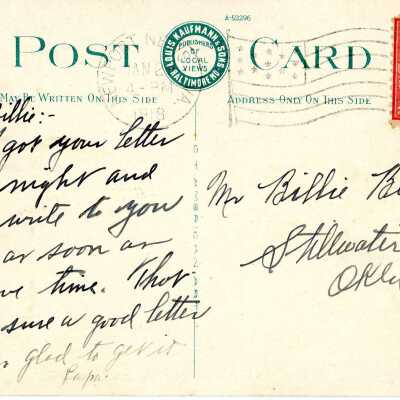 A-53296
POST CARD
LOUIS KAUFMANN & SONS
PUBLISHERS OF LOCAL VIEWS
BALTIMORE MD
MAY BE WRITTEN ON THIS SIDE
ADDRESS ONLY ON THIS SIDE
Billie:-
got your letter
night and
write to you
as soon as
time. That
sure a good letter
glad to get it
Papa.
Mr Billie
Stillwater
Okla